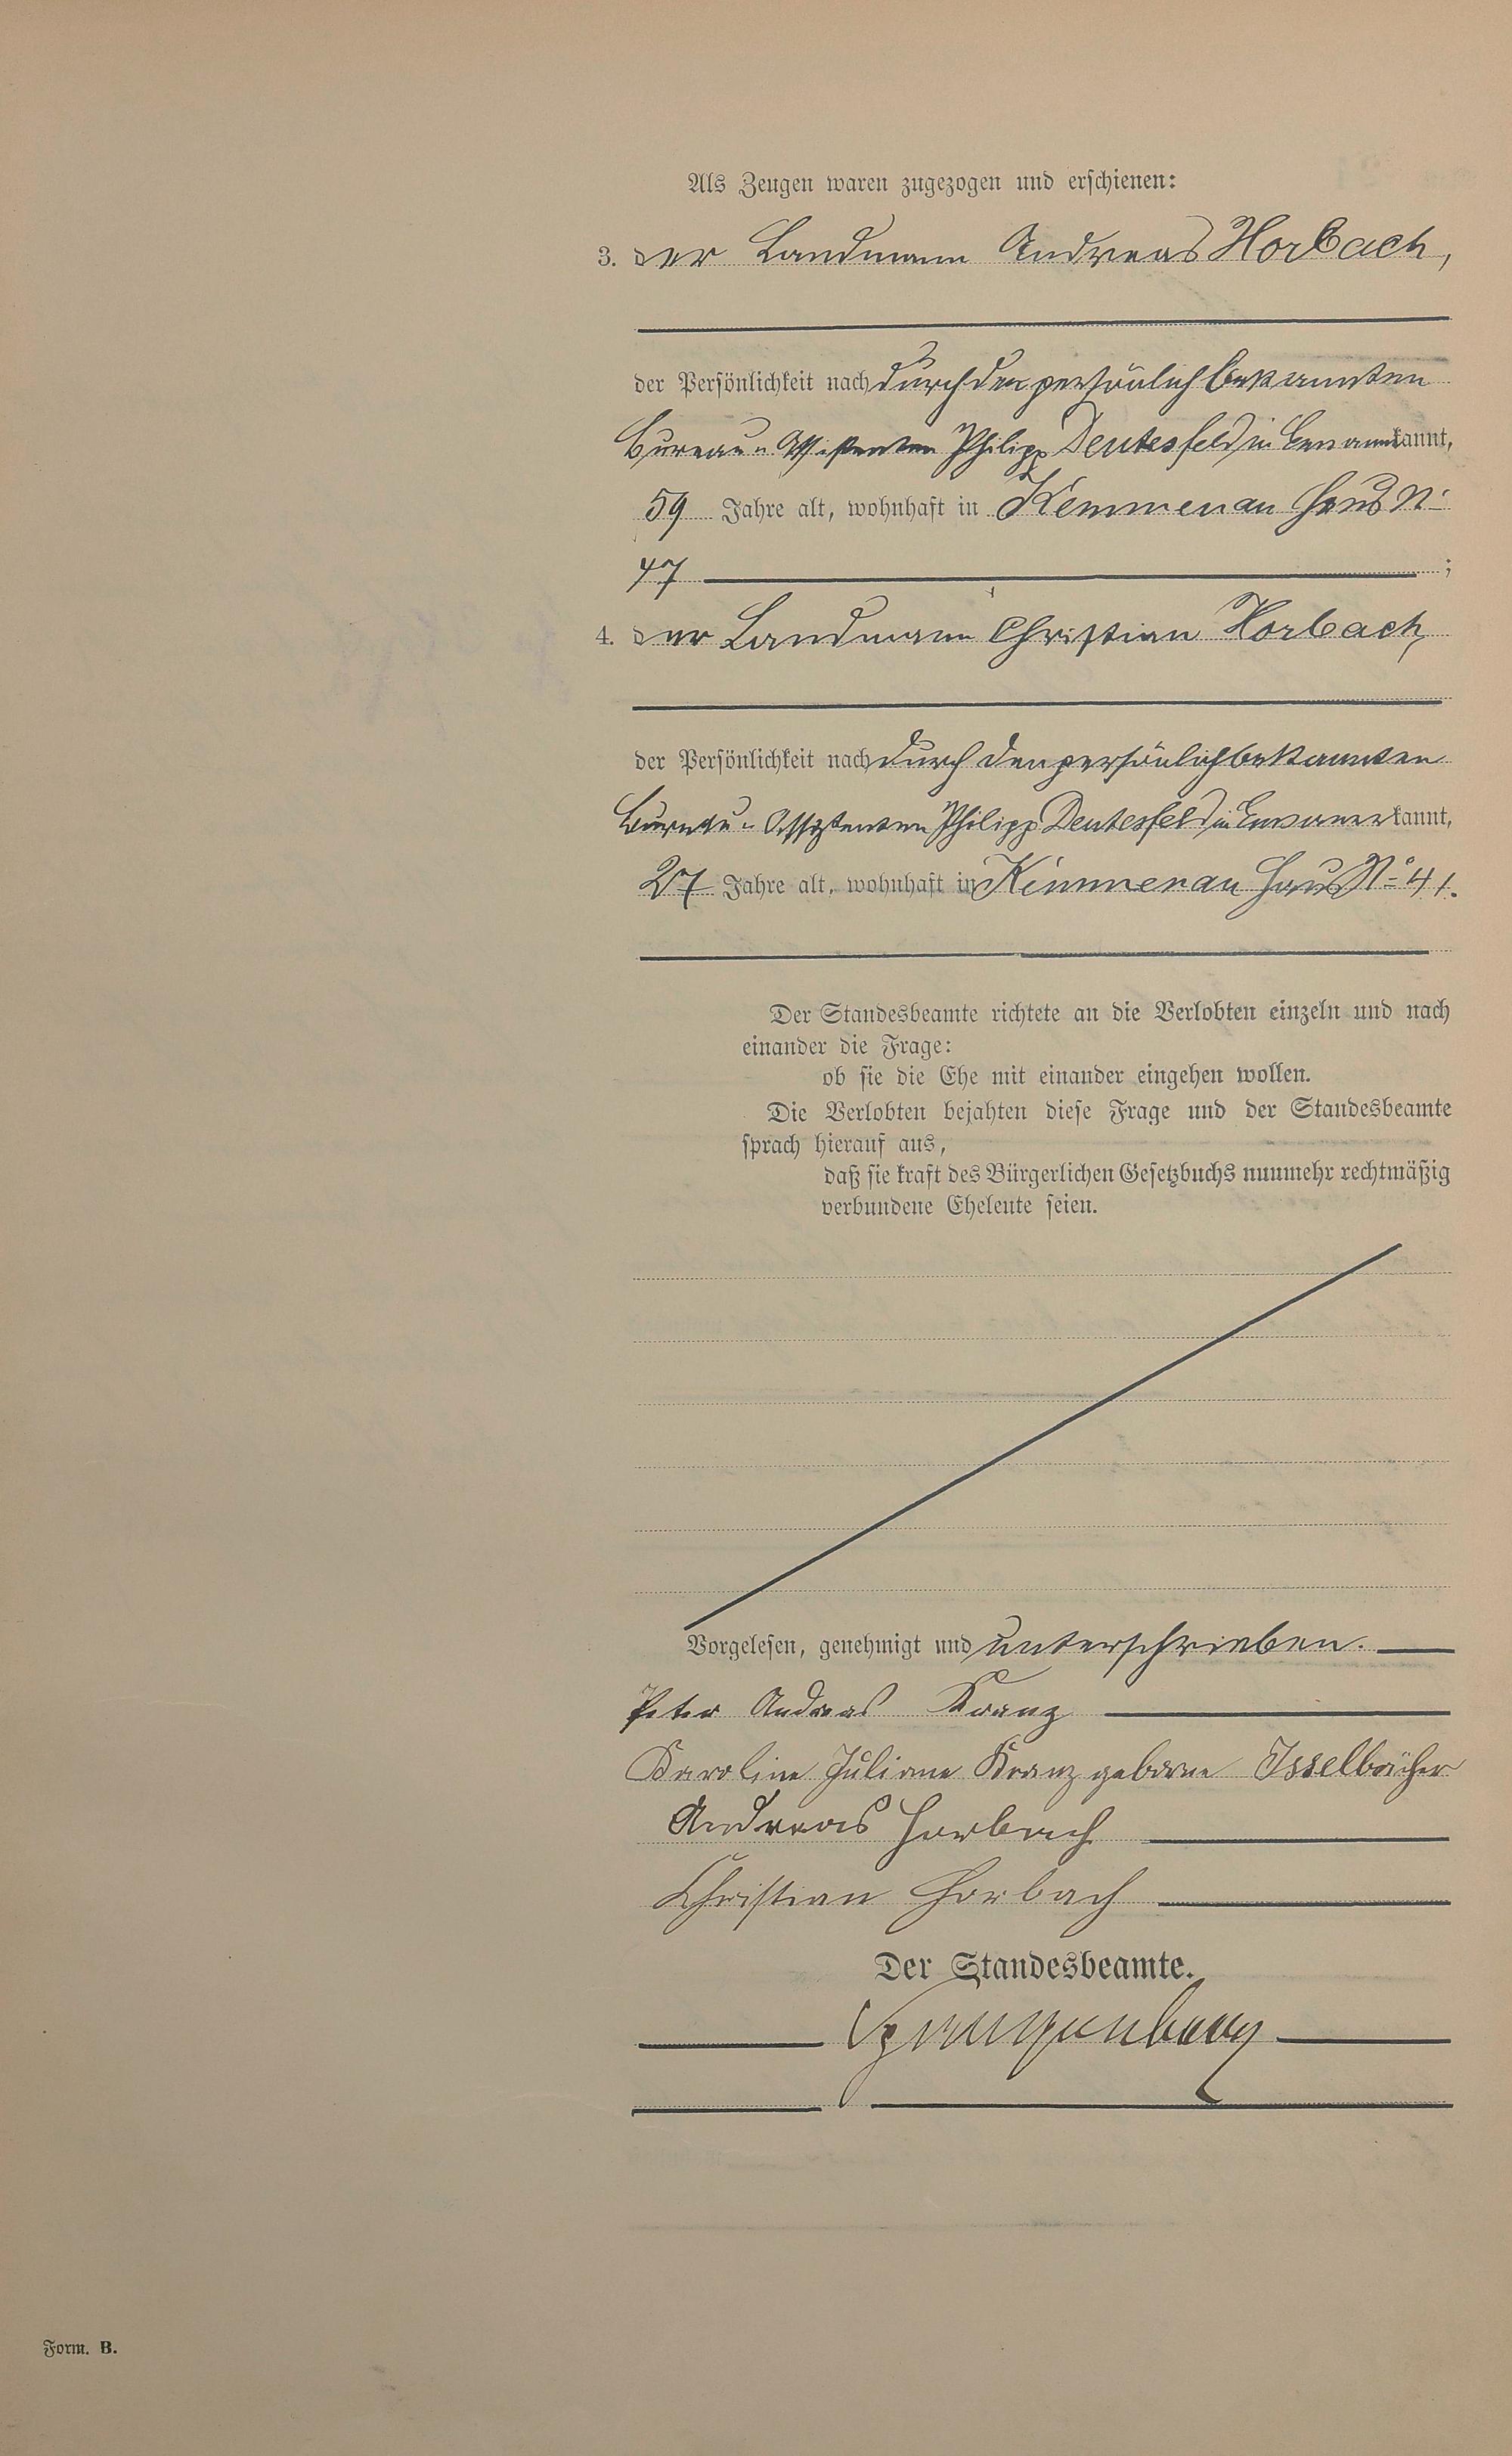 Als Zeugen waren zugezogen und erschienen:
3. der Landmann Andreas Horbach,
der Persönlichkeit nach durch den persönlich bekannten
Bureau-Assistenten Philipp Deutesfeld in Ems anerkannt,
59 Jahre alt, wohnhaft in Kemmenau Haus N:
47 ;
4. der Landmann Christian Horbach,
der Persönlichkeit nach durch den persönlich bekannten
Bureau-Assistenten Philipp Deutesfeld in Ems anerkannt,
27 Jahre alt, wohnhaft in Kemmenau Haus No 41.
Der Standesbeamte richtete an die Verlobten einzeln und nach
einander die Frage:
ob sie die Ehe mit einander eingehen wollen.
Die Verlobten bejahten diese Frage und der Standesbeamte
sprach hierauf aus,
daß sie kraft des Bürgerlichen Gesetzbuchs nunmehr rechtmäßig
verbundene Eheleute seien.
Vorgelesen, genehmigt und unterschrieben.
Peter Andreas Kranz
Karoline Juliane Kranz geborne Isselbächer
Andreas Horbach
Christian Horbach
Der Standesbeamte.
Form. B.